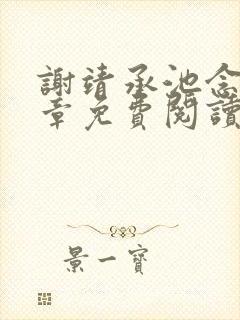 謝靖承池念
章免費閱讀
景一寶